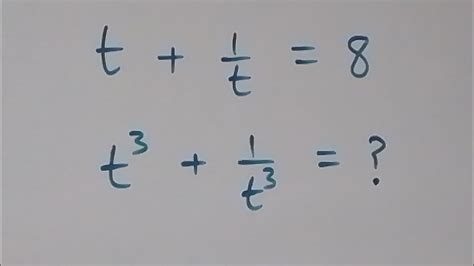 t + 1/t = 8
t³ + 1/t³ = ?